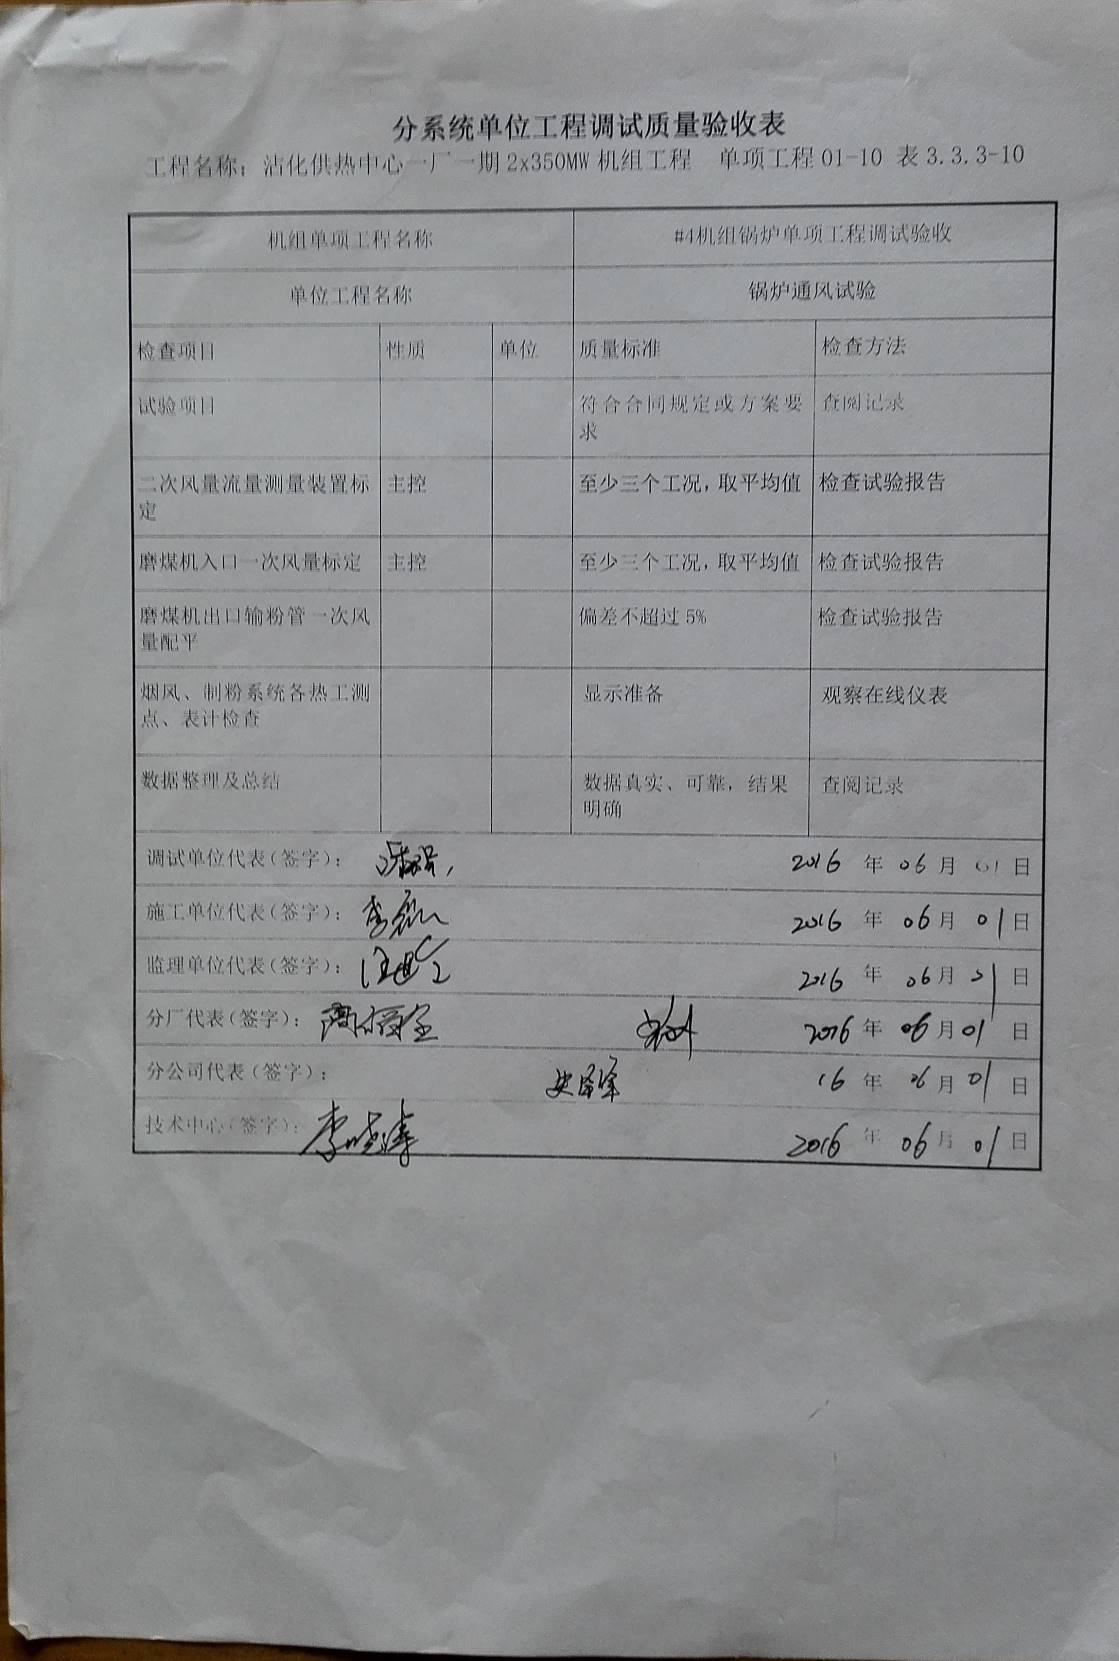 分系统单位工程调试质量验收表
工程名称：沾化供热中心一厂一期2x350MW机组工程 单项工程01-10 表3.3.3-10
机组单项工程名称 #4机组锅炉单项工程调试验收
单位工程名称 锅炉通风试验
检查项目 性质 单位 质量标准 检查方法
试验项目 符合合同规定或方案要 查阅记录
求
二次风量流量测量装置标 主控 至少三个工况，取平均值 检查试验报告
定
磨煤机入口一次风量标定 主控 至少三个工况，取平均值 检查试验报告
磨煤机出口输粉管一次风 偏差不超过5% 检查试验报告
量配平
烟风、制粉系统各热工测 显示准备 观察在线仪表
点、表计检查
数据整理及总结 数据真实、可靠，结果 查阅记录
明确
调试单位代表（签字）： 2016 年 06 月 01 日
施工单位代表（签字）： 2016 年 06 月 01 日
监理单位代表（签字）： 2016 年 06 月 01 日
分厂代表（签字）： 2016 年 06 月 01 日
分公司代表（签字）： 史泽军 16 年 06 月 01 日
技术中心（签字）： 李晓涛 2016 年 06 月 01 日